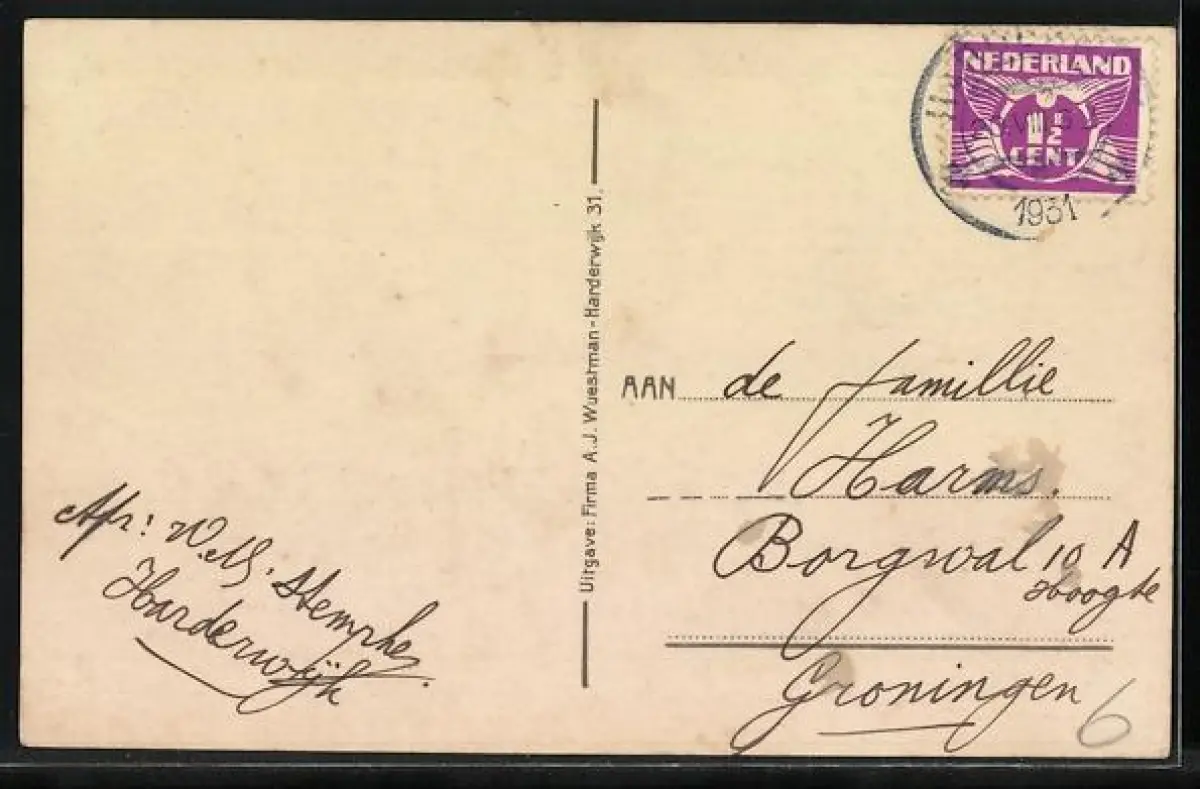 NEDERLAND
1½
CENT
1931
Uitgave: Firma A.J. Wuestman-Harderwijk 31.
AAN de famillie
Harms.
Borgwal 10 A
Hoogte
Groningen
6
Afz:
Harderwijk